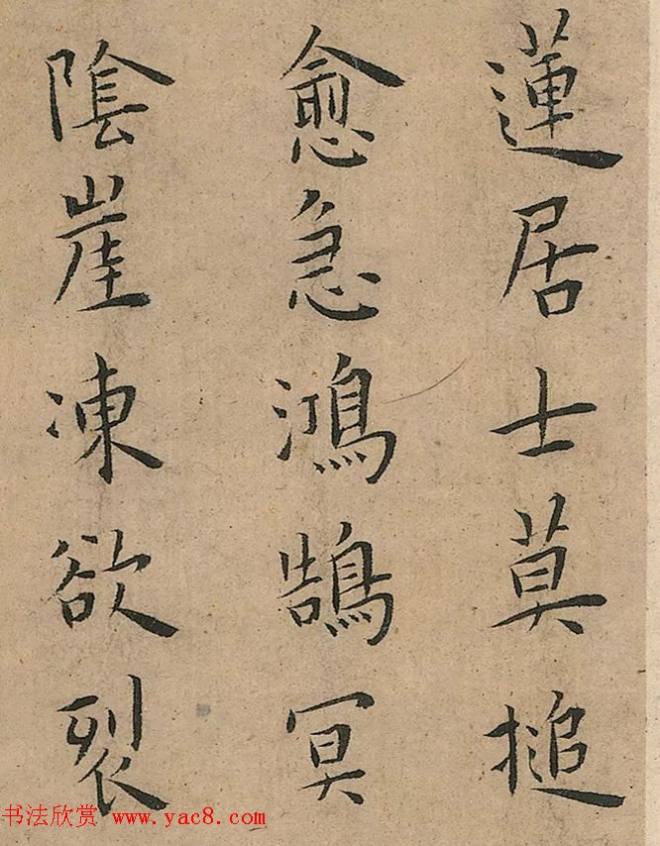 蓮居士莫搥
愈急鴻鵠冥
陰崖凍欲裂
书法欣赏 www.yac8.com